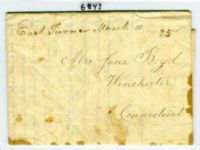 6843
East Turner March 11
25
Mrs Jane Boyd
Winchester
Connecticut